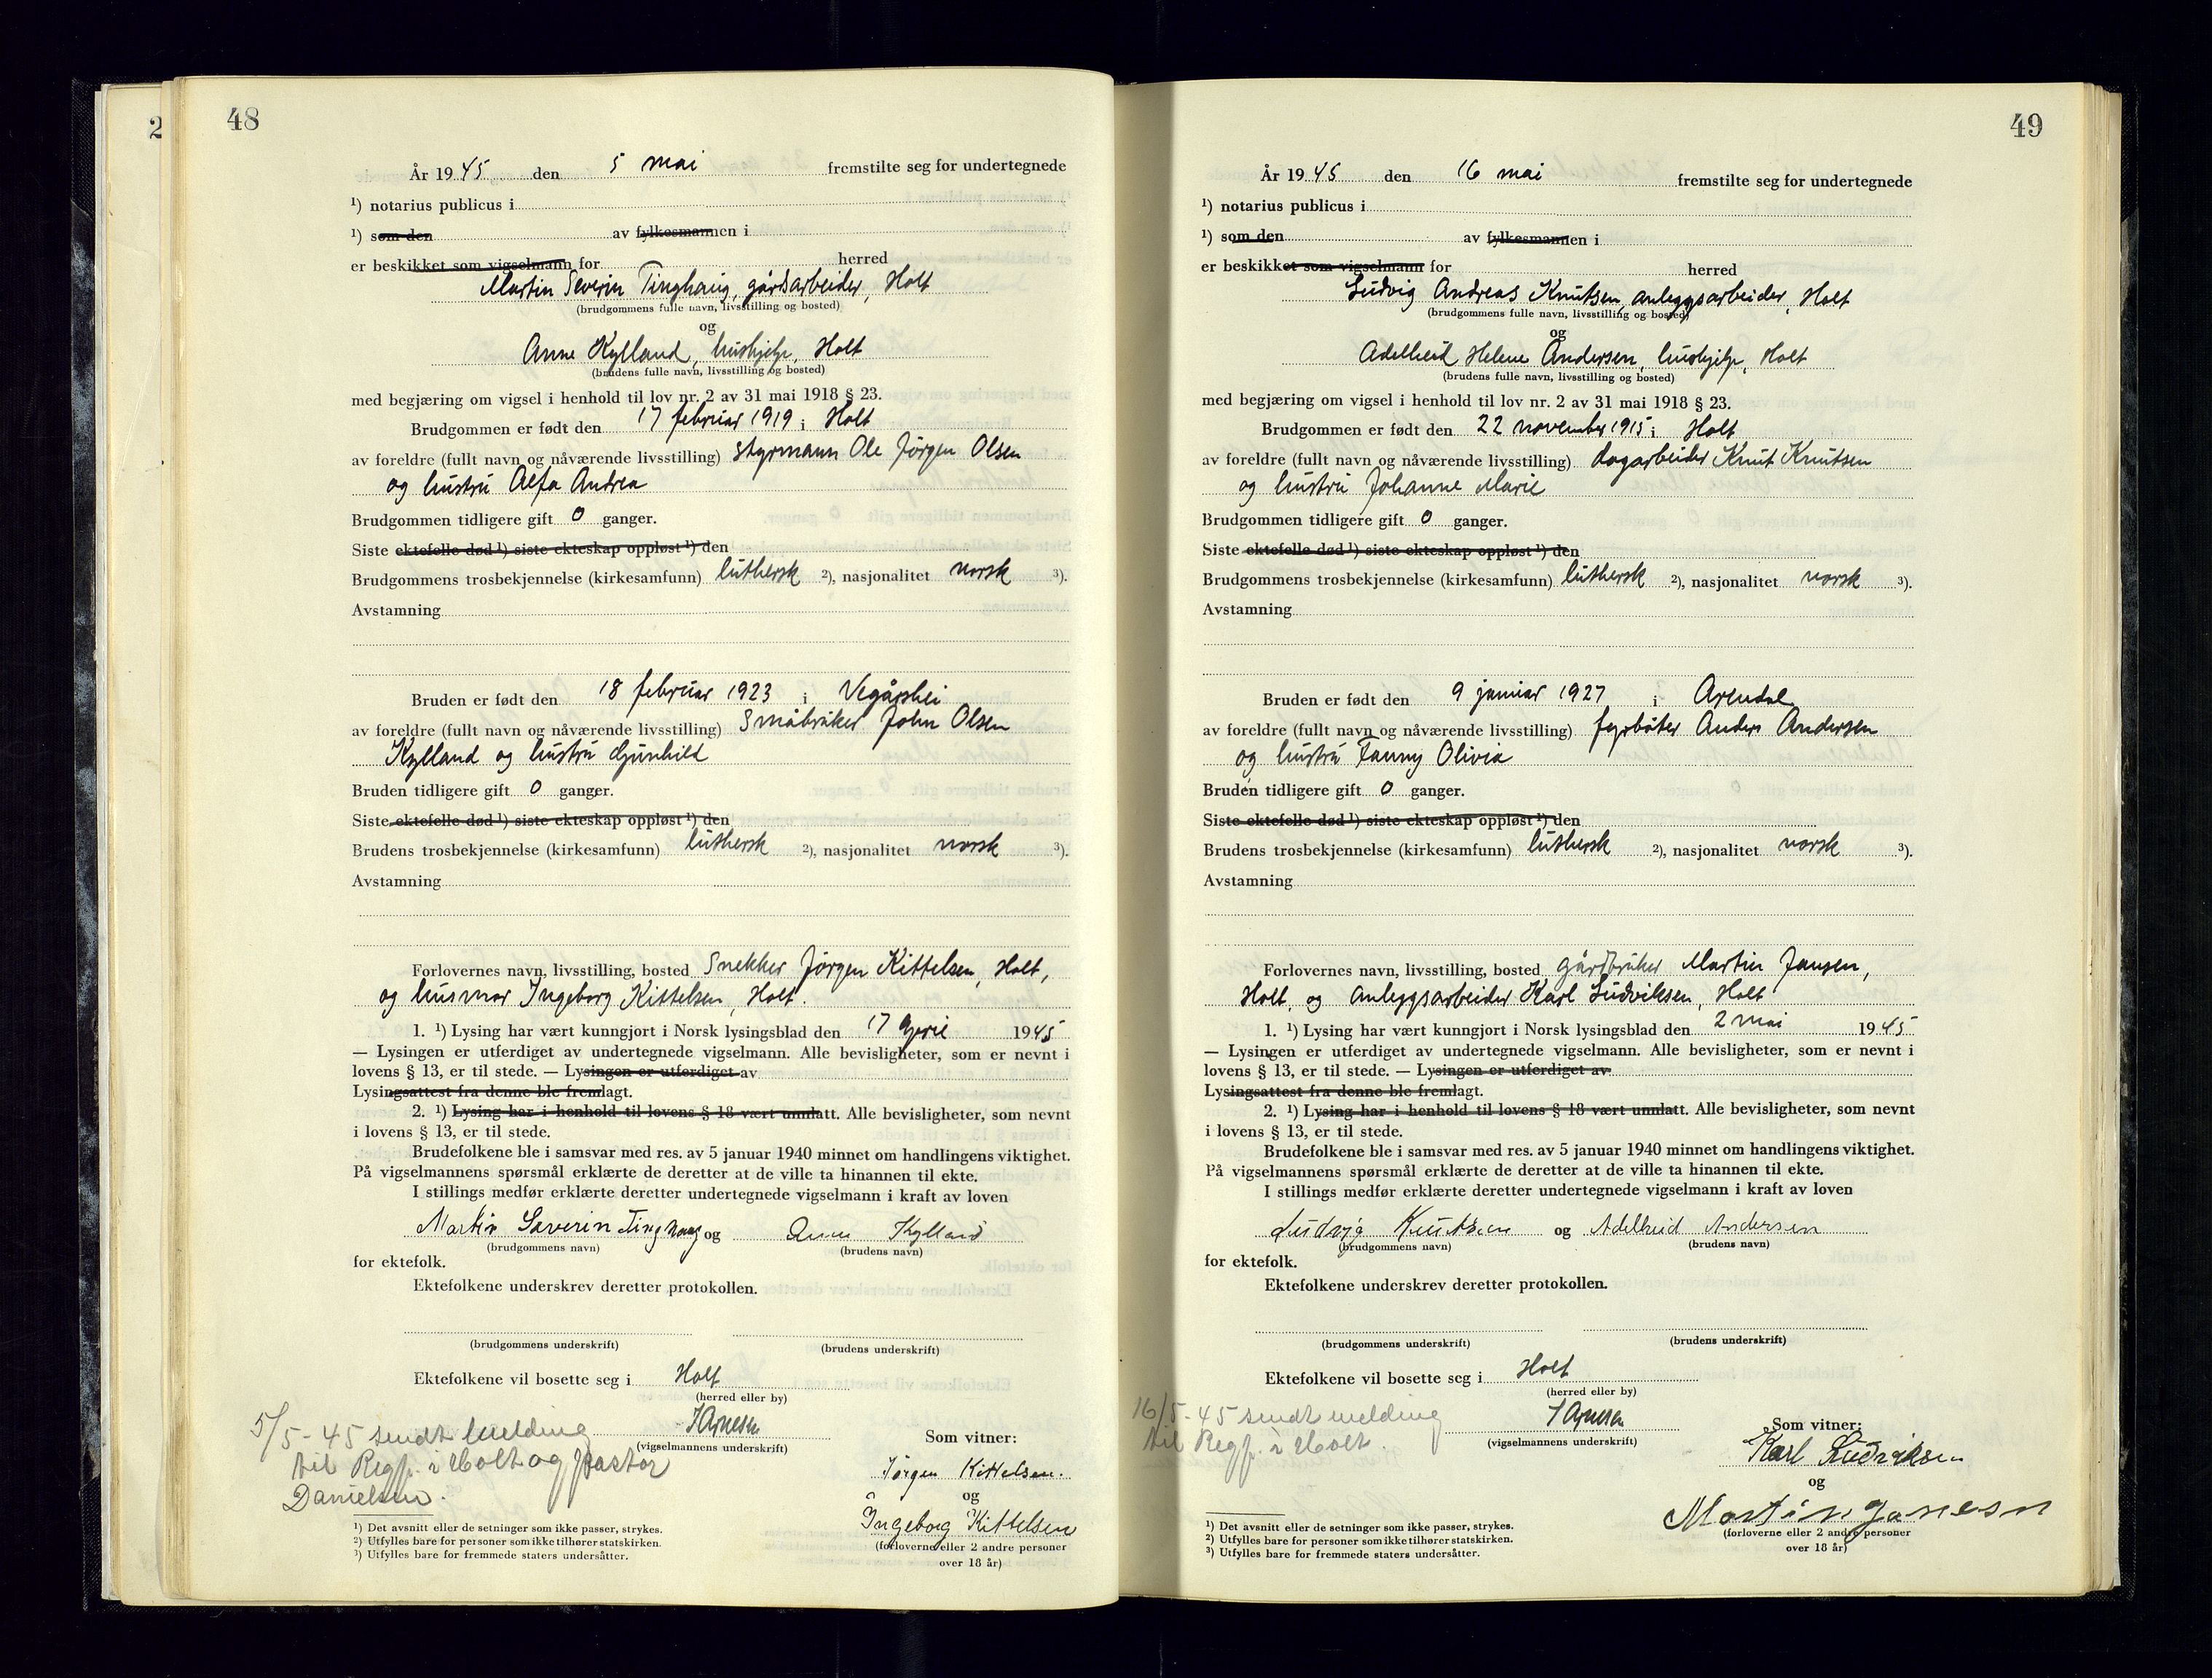 2
48
År 1945 den 5 mai fremstilte seg for undertegnede
¹) notarius publicus i
¹) som den av fylkesmannen i
er beskikket som vigselmann for herred
Martin Severin Tinghaug, gårdsarbeider, Holt
(brudgommens fulle navn, livsstilling og bosted)
og
Anne Kylland, hushjelp, Holt
(brudens fulle navn, livsstilling og bosted)
med begjæring om vigsel i henhold til lov nr. 2 av 31 mai 1918 § 23.
Brudgommen er født den 17 februar 1919 i Holt
av foreldre (fullt navn og nåværende livsstilling) styrmann Ole Jörgen Olsen
og hustru Alfa Andrea
Brudgommen tidligere gift 0 ganger.
Siste ektefelle død ¹) siste ekteskap oppløst ¹) den
Brudgommens trosbekjennelse (kirkesamfunn) luthersk ²), nasjonalitet norsk ³).
Avstamning
Bruden er født den 18 februar 1923 i Vegårshei
av foreldre (fullt navn og nåværende livsstilling) Småbruker John Olsen
Kylland og hustru Gunhild
Bruden tidligere gift 0 ganger.
Siste ektefelle død ¹) siste ekteskap oppløst ¹) den
Brudens trosbekjennelse (kirkesamfunn) luthersk ²), nasjonalitet norsk ³).
Avstamning
Forlovernes navn, livsstilling, bosted Snekker Jörgen Kittelsen, Holt,
og husmor Ingeborg Kittelsen, Holt.
1. ¹) Lysing har vært kunngjort i Norsk lysingsblad den 17 april 1945
— Lysingen er utferdiget av undertegnede vigselmann. Alle bevisligheter, som er nevnt i
lovens § 13, er til stede. — Lysingen er utferdiget av
Lysingsattest fra denne ble fremlagt.
2. ¹) Lysing har i henhold til lovens § 18 vært unnlatt. Alle bevisligheter, som nevnt
i lovens § 13, er til stede.
Brudefolkene ble i samsvar med res. av 5 januar 1940 minnet om handlingens viktighet.
På vigselmannens spørsmål erklærte de deretter at de ville ta hinannen til ekte.
I stillings medfør erklærte deretter undertegnede vigselmann i kraft av loven
Martin Severin Tinghaug og Anne Kylland
(brudgommens navn) (brudens navn)
for ektefolk.
Ektefolkene underskrev deretter protokollen.
(brudgommens underskrift) (brudens underskrift)
Ektefolkene vil bosette seg i Holt
(herred eller by)
(vigselmannens underskrift)
5/5-45 sendt melding
til Regf. i Holt og pastor
Danielsen.
Som vitner:
Jörgen Kittelsen.
og
Ingeborg Kittelsen
(forloverne eller 2 andre personer
over 18 år)
¹) Det avsnitt eller de setninger som ikke passer, strykes.
²) Utfylles bare for personer som ikke tilhører statskirken.
³) Utfylles bare for fremmede staters undersåtter.
49
År 1945 den 16 mai fremstilte seg for undertegnede
¹) notarius publicus i
¹) som den av fylkesmannen i
er beskikket som vigselmann for herred
Ludvig Andreas Knutsen, anleggsarbeider, Holt
(brudgommens fulle navn, livsstilling og bosted)
og
Adelheid Helene Andersen, hushjelp, Holt
(brudens fulle navn, livsstilling og bosted)
med begjæring om vigsel i henhold til lov nr. 2 av 31 mai 1918 § 23.
Brudgommen er født den 22 november 1915 i Holt
av foreldre (fullt navn og nåværende livsstilling) dagarbeider Knut Knutsen
og hustru Johanne Marie
Brudgommen tidligere gift 0 ganger.
Siste ektefelle død ¹) siste ekteskap oppløst ¹) den
Brudgommens trosbekjennelse (kirkesamfunn) luthersk ²), nasjonalitet norsk ³).
Avstamning
Bruden er født den 9 januar 1927 i Arendal
av foreldre (fullt navn og nåværende livsstilling) fyrbøter Anders Andersen
og hustru Fanny Olivia
Bruden tidligere gift 0 ganger.
Siste ektefelle død ¹) siste ekteskap oppløst ¹) den
Brudens trosbekjennelse (kirkesamfunn) luthersk ²), nasjonalitet norsk ³).
Avstamning
Forlovernes navn, livsstilling, bosted gårdbruker Martin Jansen,
Holt, og Anleggsarbeider Karl Ludviksen, Holt
1. ¹) Lysing har vært kunngjort i Norsk lysingsblad den 2 mai 1945
— Lysingen er utferdiget av undertegnede vigselmann. Alle bevisligheter, som er nevnt i
lovens § 13, er til stede. — Lysingen er utferdiget av
Lysingsattest fra denne ble fremlagt.
2. ¹) Lysing har i henhold til lovens § 18 vært unnlatt. Alle bevisligheter, som nevnt
i lovens § 13, er til stede.
Brudefolkene ble i samsvar med res. av 5 januar 1940 minnet om handlingens viktighet.
På vigselmannens spørsmål erklærte de deretter at de ville ta hinannen til ekte.
I stillings medfør erklærte deretter undertegnede vigselmann i kraft av loven
Ludvig Knutsen og Adelheid Andersen
(brudgommens navn) (brudens navn)
for ektefolk.
Ektefolkene underskrev deretter protokollen.
(brudgommens underskrift) (brudens underskrift)
Ektefolkene vil bosette seg i Holt
(herred eller by)
(vigselmannens underskrift)
16/5-45 sendt melding
til Regf. i Holt.
Som vitner:
Karl Ludviksen
og
Martin Jansen
(forloverne eller 2 andre personer
over 18 år)
¹) Det avsnitt eller de setninger som ikke passer, strykes.
²) Utfylles bare for personer som ikke tilhører statskirken.
³) Utfylles bare for fremmede staters undersåtter.